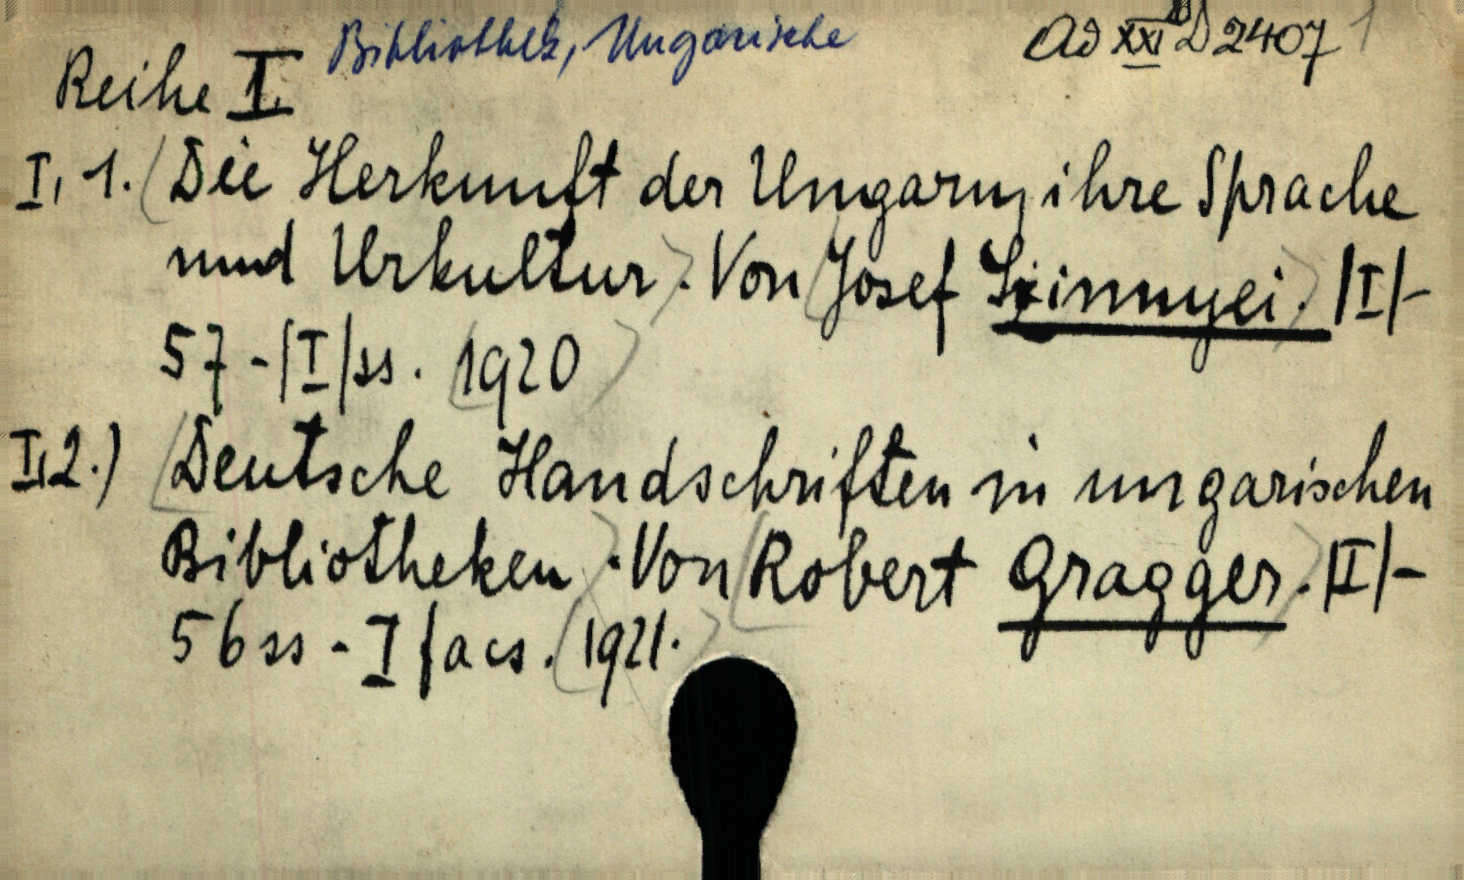 Bibliothek, Ungarische
Ad XXI D 2407 1
Reihe I.
I, 1. (Die Herkunft der Ungarn, ihre Sprache
und Urkultur). Von (Josef Szinnyei.) |I|-
57-|I|ss. (1920)
I,2.) (Deutsche Handschriften in ungarischen
Bibliotheken). Von (Robert Gragger.) |I|-
56 ss - I facs. (1921.)